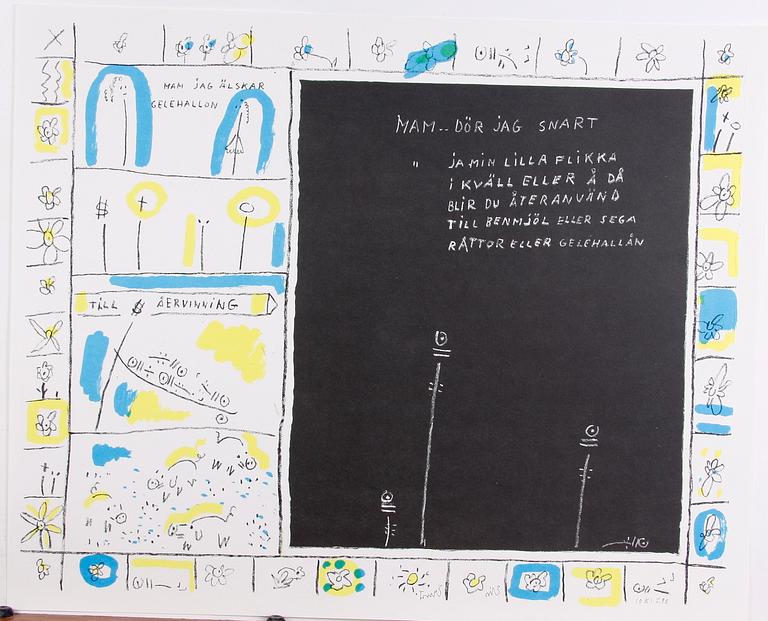 MAM JAG ÄLSKAR
GELEHALLON
TILL $ ÅERVINNING
MAM.. DÖR JAG SNART
" JA MIN LILLA FLIKKA
I KVÄLL ELLER Å DÅ
BLIR DU ÅTERANVÄND
TILL BENMJÖL ELLER SEGA
RÅTTOR ELLER GELEHALLÅN